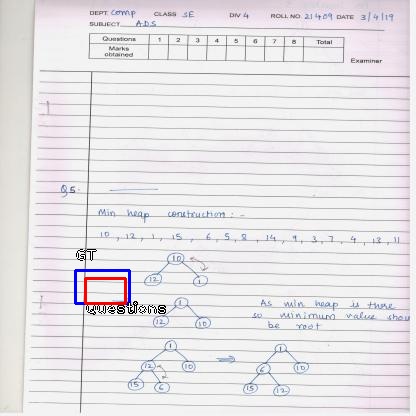 DEPT. Comp CLASS SE DIV 4 ROLL NO. 21409 DATE 3/4/19
SUBJECT ADS
Questions 1 2 3 4 5 6 7 8 Total
Marks obtained
Examiner
Q5.
Min heap construction: -
10, 12, 1, 15, 6, 5, 8, 14, 9, 3, 7, 4, 13, 11
GT
10
12 1
Questions
1
12 10
As min heap is there
so minimum value shou
be root
1
12 10
15 6
1
6 10
15 12